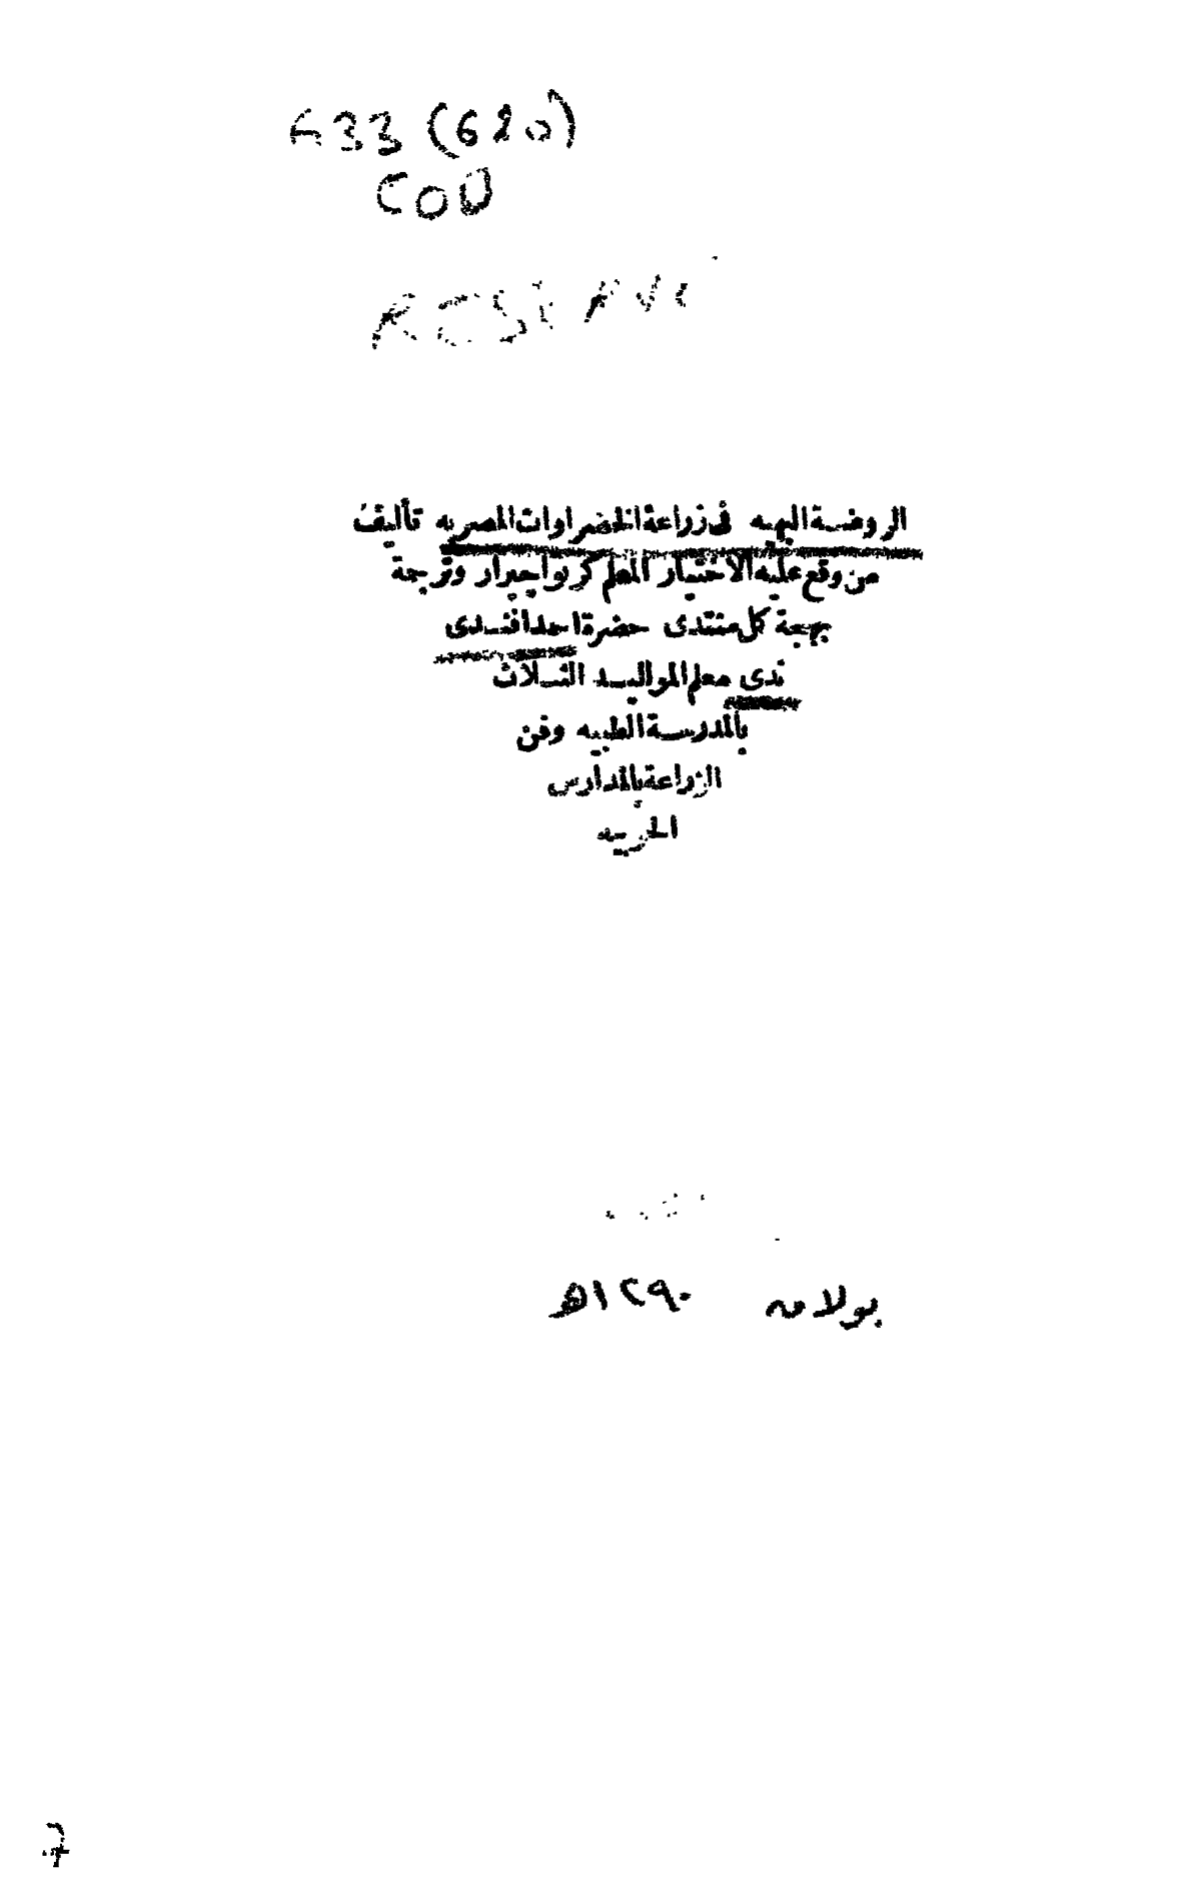 633 (620)
COU
الروضة البهيه فى زراعة الخضراوات المصريه تأليف
من وقع عليه الاختيار المعلم كربواجيرار وترجمة
بهجة كل منتدى حضرة احمد افندى
ندى معلم المواليد الثلاث
بالمدرسة الطبيه وفن
الزراعة بالمدارس
الحربيه
بولاق ١٢٩٠هـ